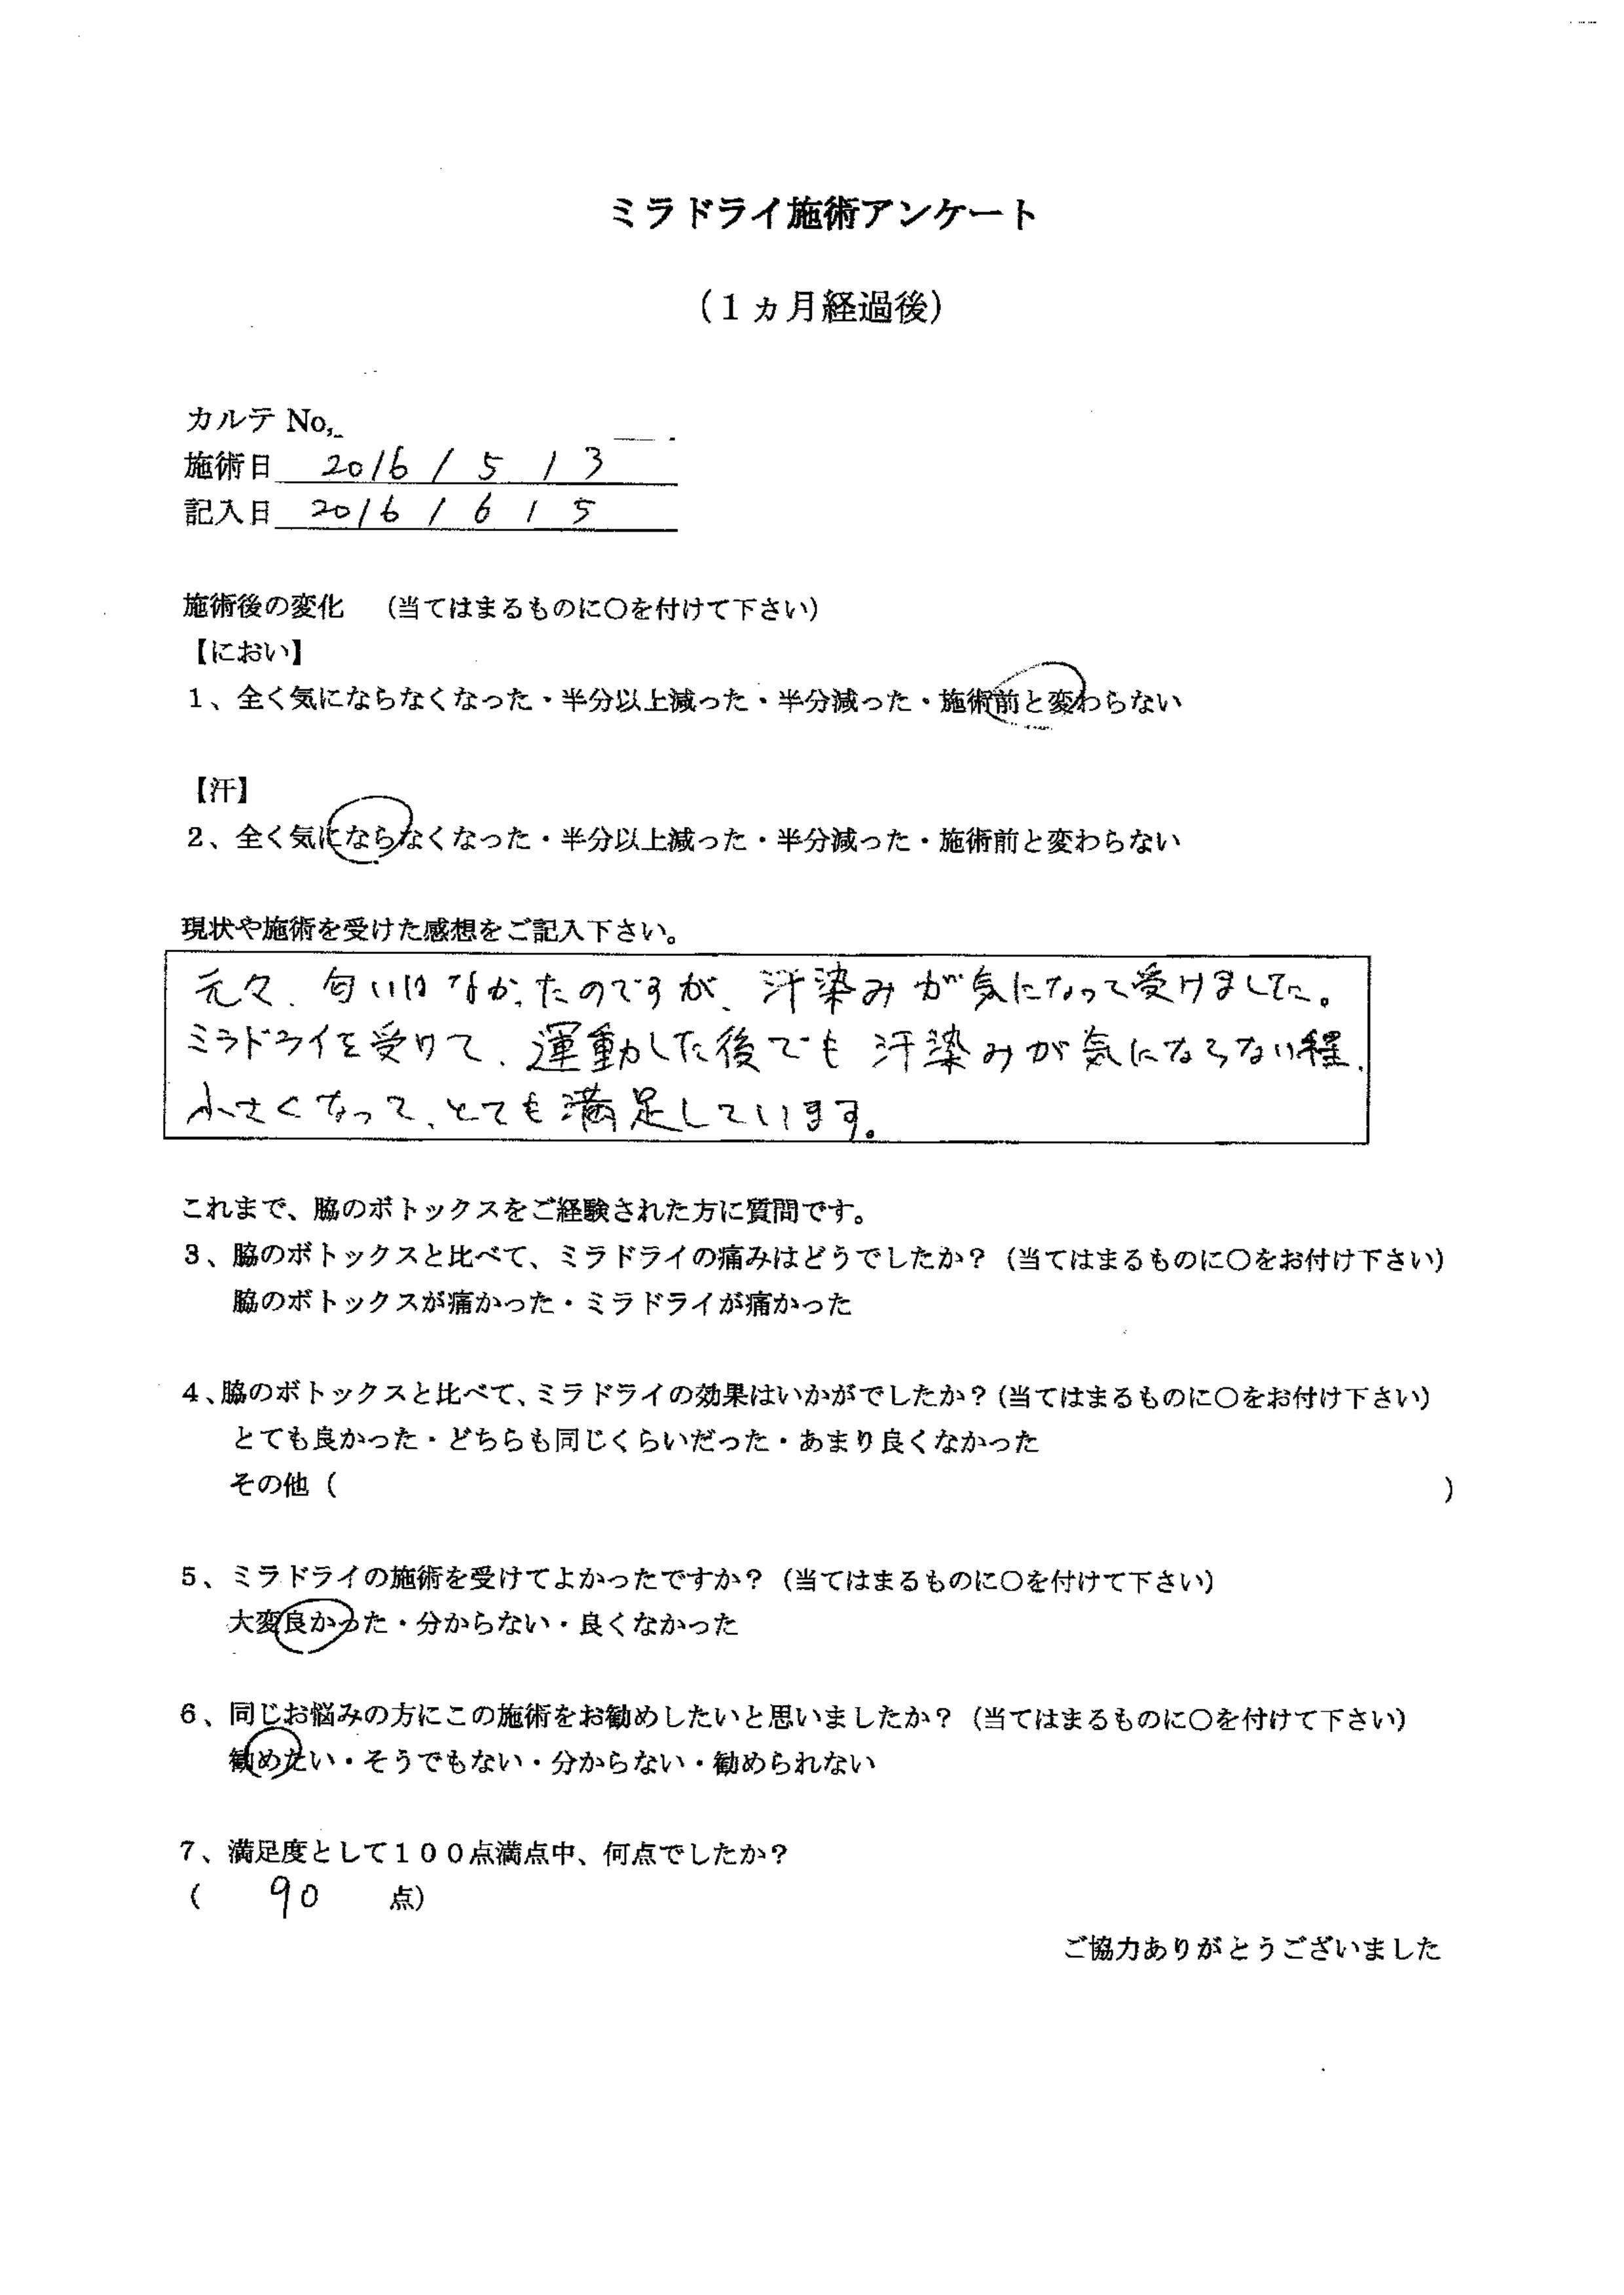 ミラドライ施術アンケート
（1ヵ月経過後）
カルテ No,
施術日 2016 / 5 / 3
記入日 2016 / 6 / 5
施術後の変化　（当てはまるものに〇を付けて下さい）
【におい】
1、全く気にならなくなった・半分以上減った・半分減った・施術前と変わらない
【汗】
2、全く気にならなくなった・半分以上減った・半分減った・施術前と変わらない
現状や施術を受けた感想をご記入下さい。
元々、匂いはなかったのですが、汗染みが気になって受けました。
ミラドライを受けて、運動した後でも汗染みが気にならない程、
小さくなって、とても満足しています。
これまで、脇のボトックスをご経験された方に質問です。
3、脇のボトックスと比べて、ミラドライの痛みはどうでしたか？（当てはまるものに〇をお付け下さい）
脇のボトックスが痛かった・ミラドライが痛かった
4、脇のボトックスと比べて、ミラドライの効果はいかがでしたか？（当てはまるものに〇をお付け下さい）
とても良かった・どちらも同じくらいだった・あまり良くなかった
その他（　　　）
5、ミラドライの施術を受けてよかったですか？（当てはまるものに〇を付けて下さい）
大変良かった・分からない・良くなかった
6、同じお悩みの方にこの施術をお勧めしたいと思いましたか？（当てはまるものに〇を付けて下さい）
勧めたい・そうでもない・分からない・勧められない
7、満足度として１００点満点中、何点でしたか？
（　90　点）
ご協力ありがとうございました